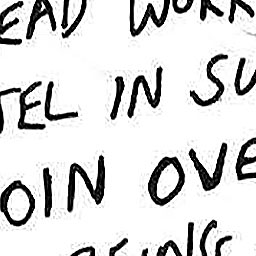 EAD WORK
TEL IN SU
OIN OVE
BEING